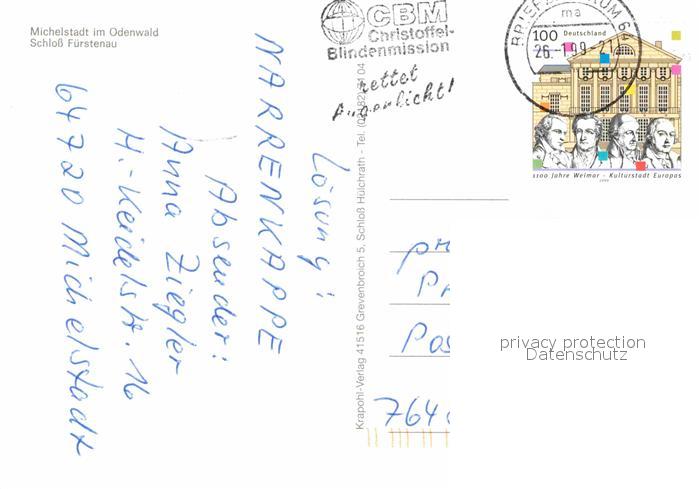 Michelstadt im Odenwald
Schloß Fürstenau
CBM
Christoffel-
Blindenmission
rettet
Augenlicht!
BRIEFZENTRUM 64
ma
26.-1.99-21
100 Deutschland
1100 Jahre Weimar - Kulturstadt Europas
Lösung:
NARRENKAPPE
Absender:
Anna Ziegler
64720 Michelstadt
Krapohl-Verlag 41516 Grevenbroich 5, Schloß Hülchrath - Tel.
privacy protection
Datenschutz
764